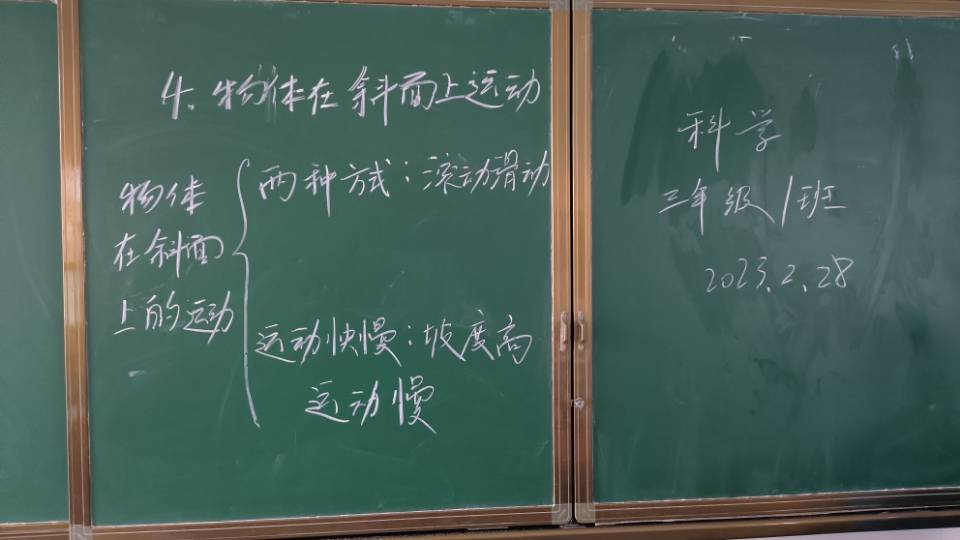 4、物体在斜面上运动
物体
在斜面
上的运动
两种方式：滚动滑动
运动快慢：坡度高
运动慢
科学
三年级1班
2023.2.28